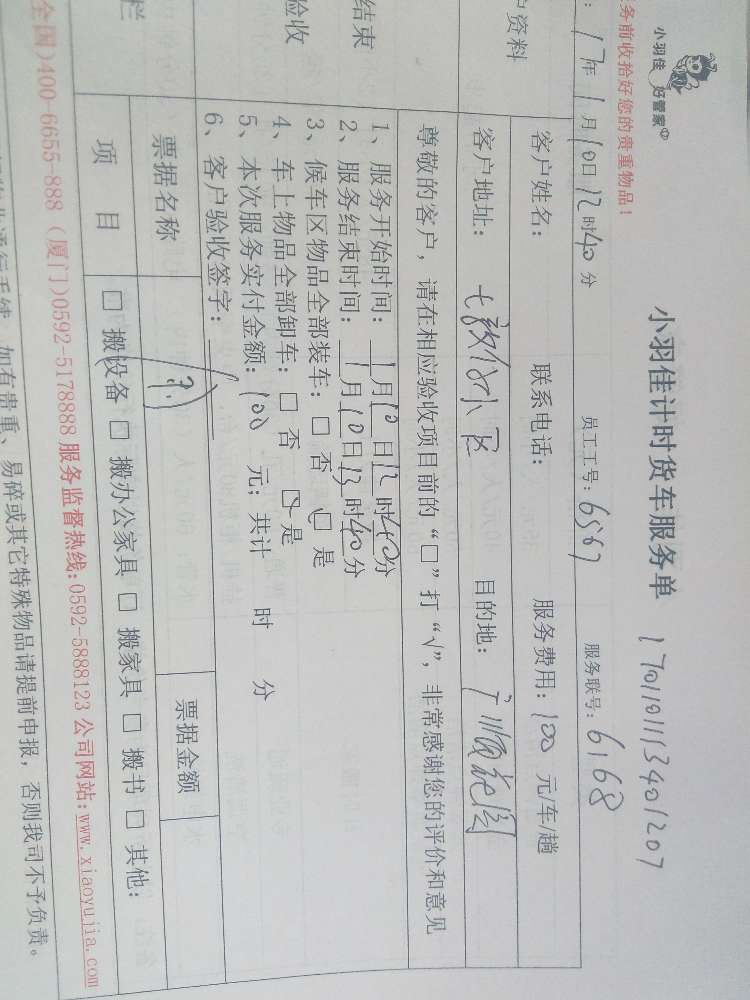 小羽佳 好管家
务前收拾好您的贵重物品！
小羽佳计时货车服务单
1701101113401207
17年1月10日12时40分 员工工号：6567 服务联号：6168
户资料
客户姓名： 联系电话： 服务费用：100 元/车/趟
客户地址： 小区 目的地：
尊敬的客户，请在相应验收项目前的“□”打“√”，非常感谢您的评价和意见
结束
验收
1、服务开始时间：1月10日12时40分
2、服务结束时间：1月10日13时40分
3、候车区物品全部装车：□ 否 □ 是
4、车上物品全部卸车：□ 否 □ 是
5、本次服务实付金额：100 元；共计 时 分
6、客户验收签字：
栏
票据名称 票据金额
项目 □ 搬设备 □ 搬办公家具 □ 搬家具 □ 搬书 □ 其他：
全国)400-6655-888 (厦门)0592-5178888 服务监督热线:0592-5888123 公司网站:www.xiaoyujia.com
通行手续，如有贵重、易碎或其它特殊物品请提前申报，否则我司不予负责。